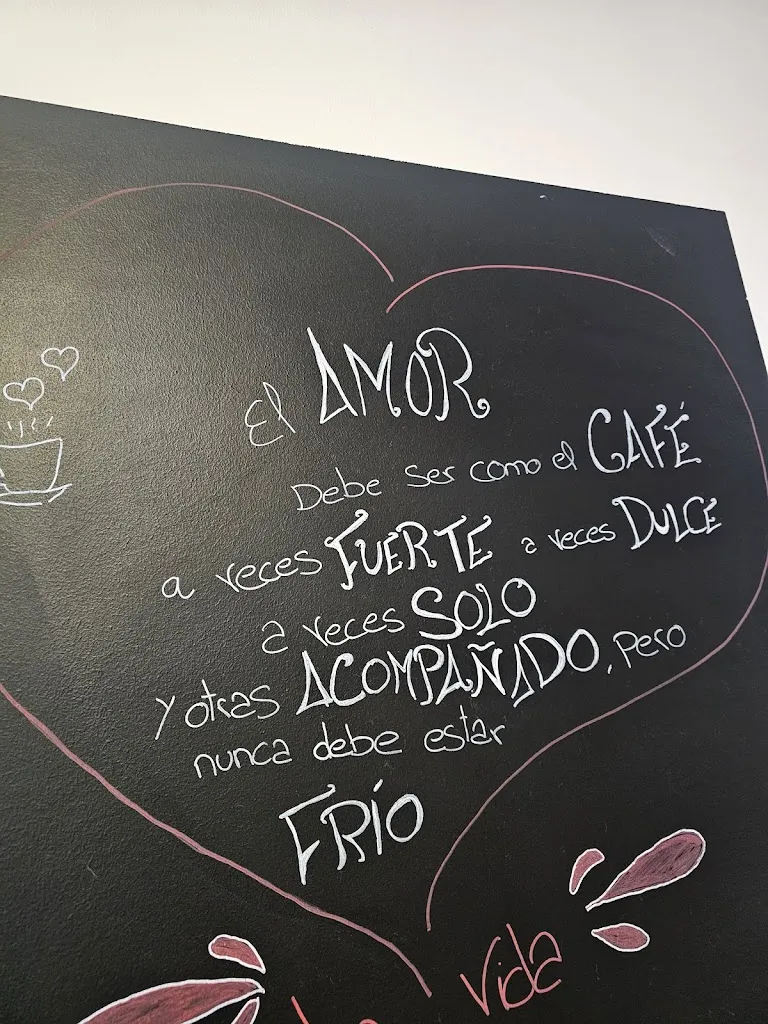 El AMOR
Debe ser como el CAFÉ
a veces FUERTE a veces DULCE
a veces SOLO
y otras ACOMPAÑADO, pero
nunca debe estar
FRÍO
Vida